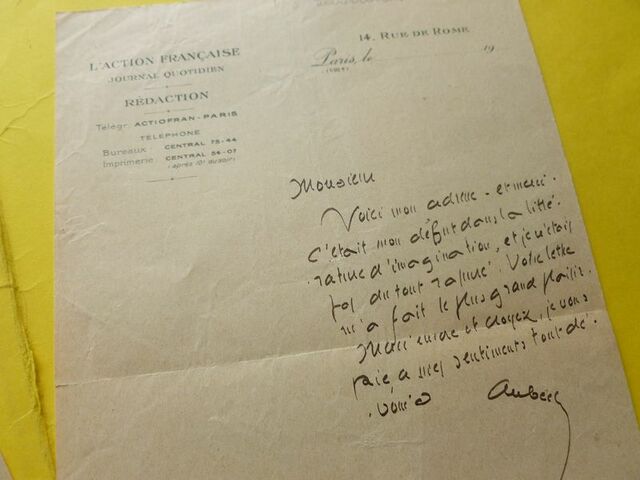 L'ACTION FRANÇAISE
JOURNAL QUOTIDIEN
RÉDACTION
Télégr. ACTIOFRAN-PARIS
TÉLÉPHONE
Bureaux CENTRAL 75-44
Imprimerie CENTRAL 56-01
(après 10h du soir)
14, RUE DE ROME
Paris, le 19
(VIIIe)
Monsieur
Voici mon adresse - et merci.
C'était mon début dans la litté-
rature d'imagination, et je n'étais
pas du tout rassuré. Votre lettre
m'a fait le plus grand plaisir.
Merci encore et croyez, je vous
prie, à mes sentiments tout dé-
voués